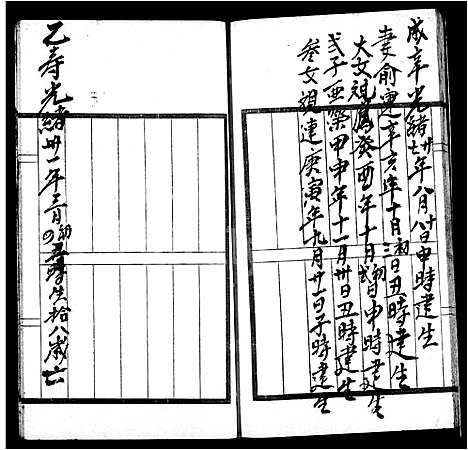 成辛光緒廿七年八月十八日申時建生
妻俞蓮辛亥年十月初三日丑時建生
大女祖鳳癸酉年十月初弍日申時建生
弍子亜築甲申年十一月卅日丑時建生
叁女祖連庚寅年九月廿一日子時建生
乙寿光緒卅一年三月初四日時生拾八歲亡